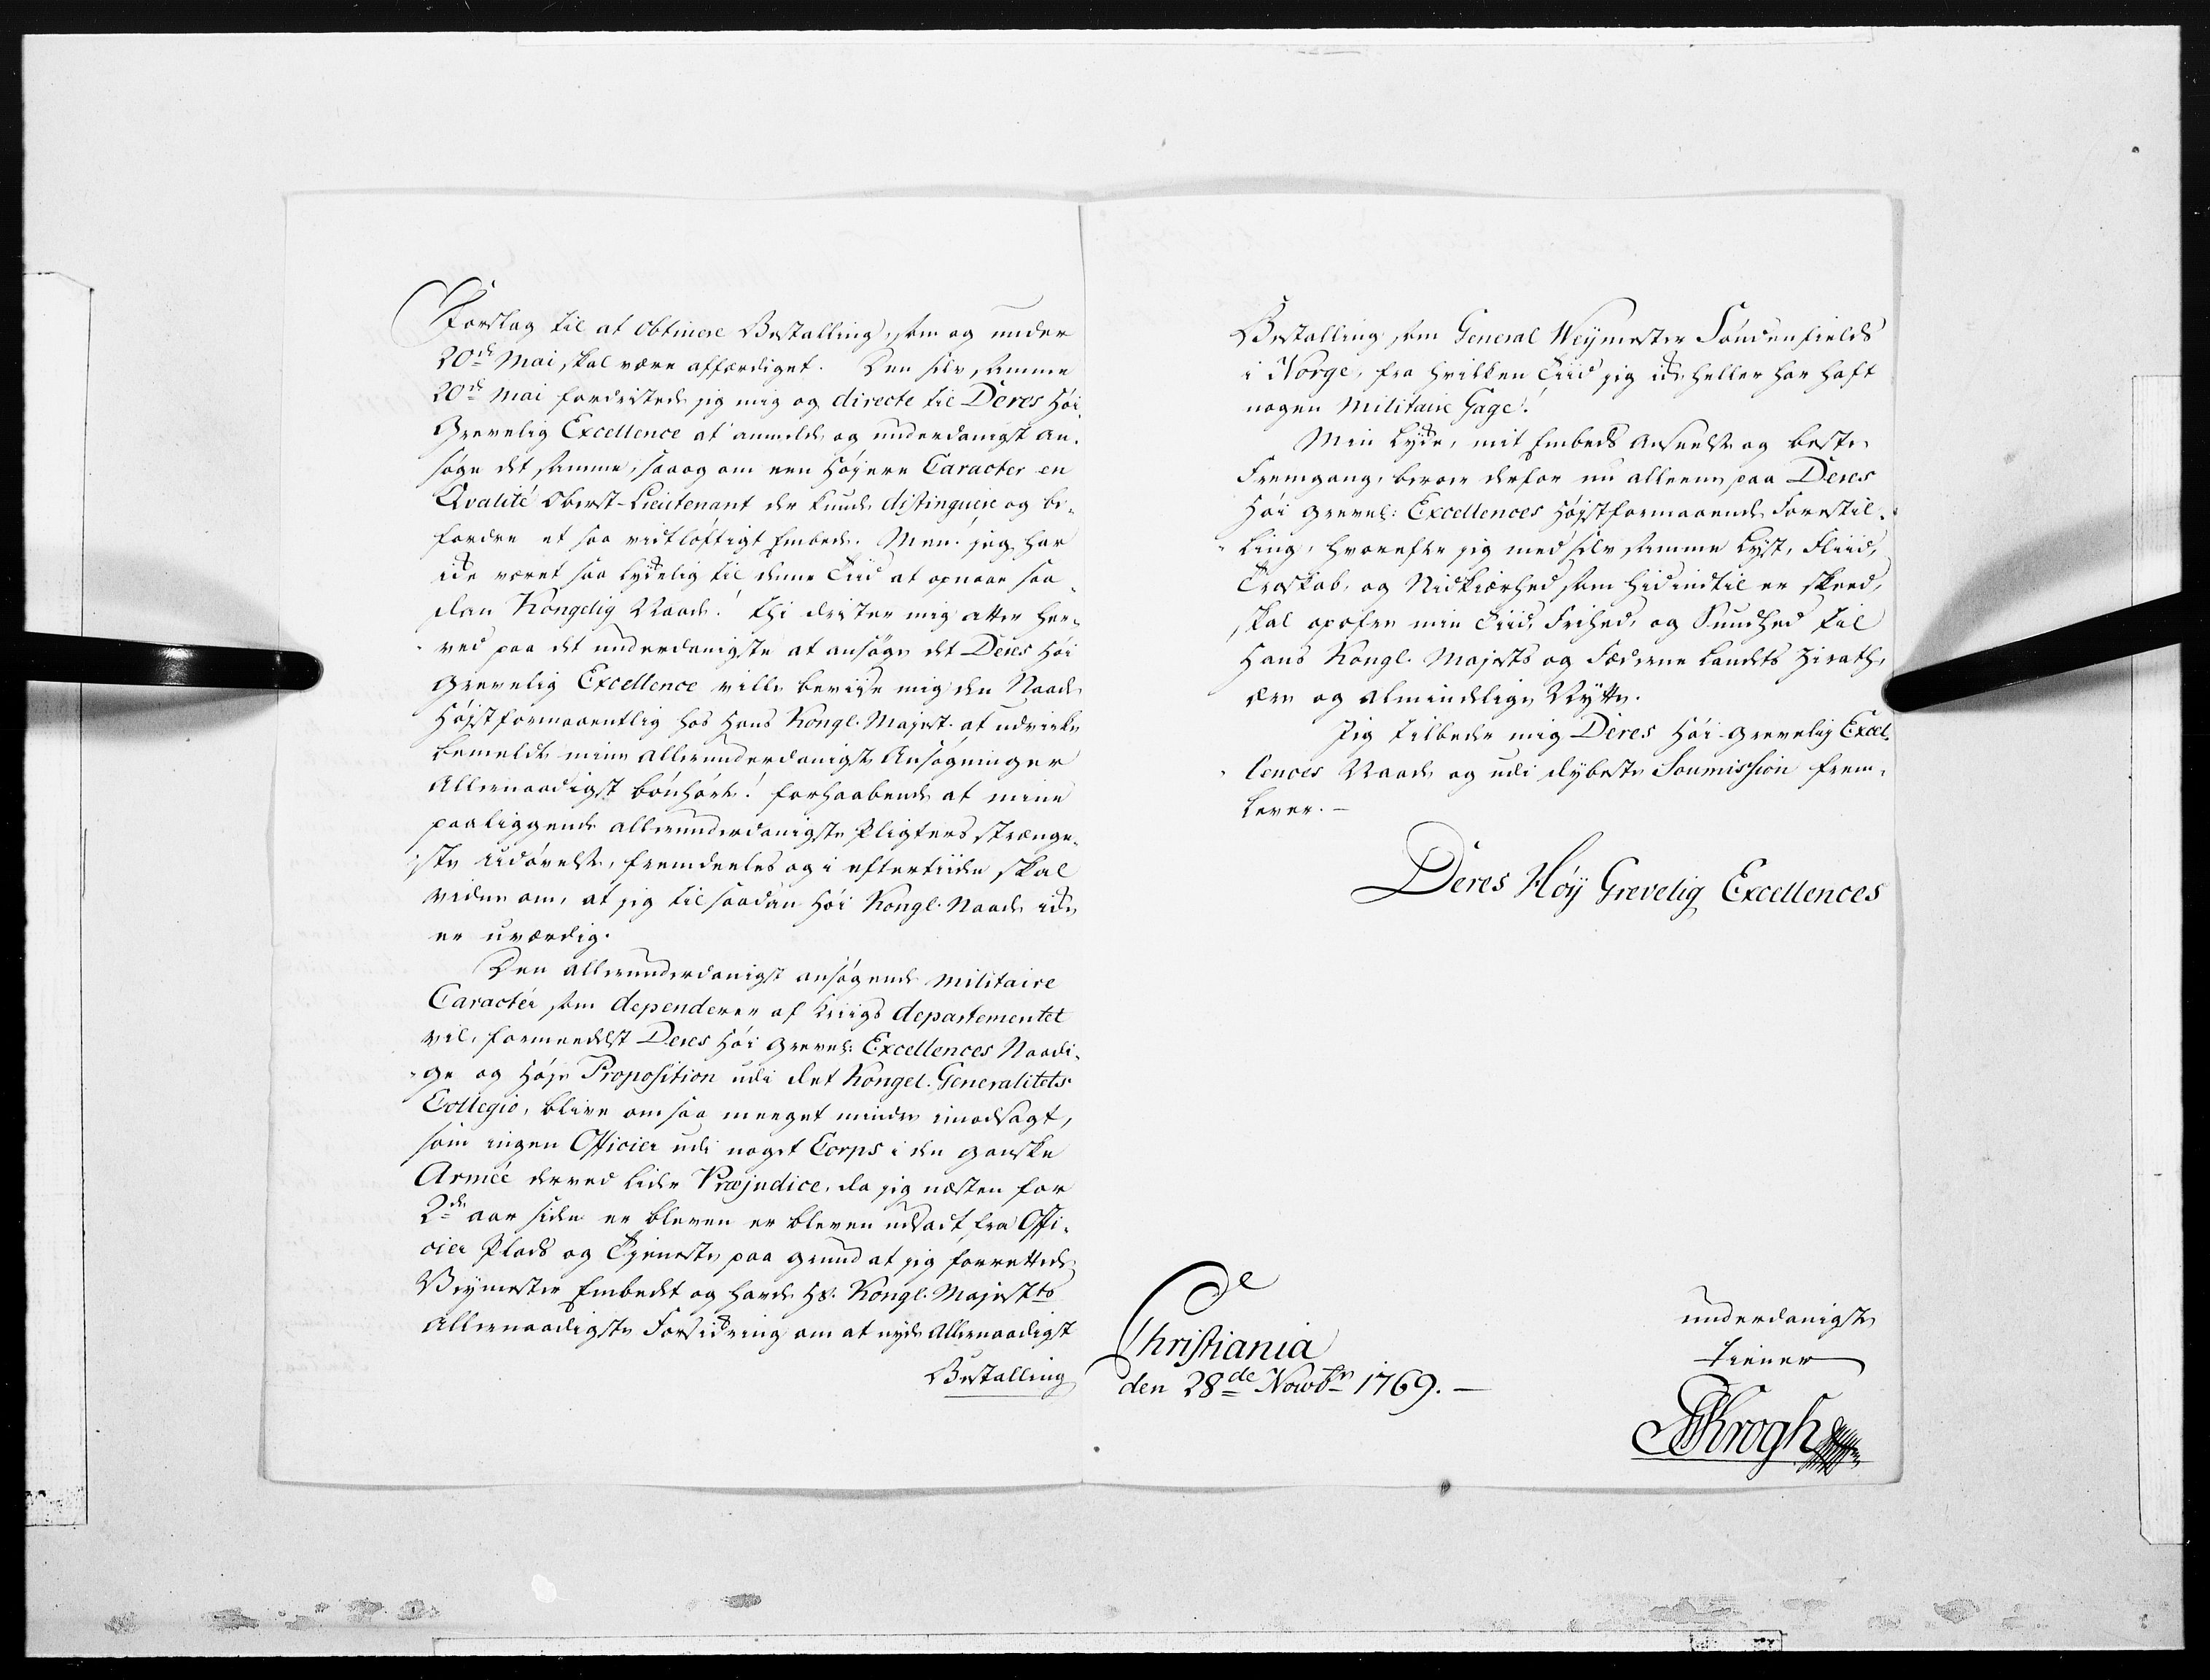 Forslag til at obtinere Bestalling, som og under
20de Mai skal være affærdiget. Den selv samme
20de Mai fordristede jeg mig og directe til Deres Høi
Grevelig Excellence at anmelde og underdanigst an-
søge det samme, saa og om een Høyere Caracter en
Qvalité Oberst-Lieutenant der kunde distinguere og be-
fordre et saa vidtløftigt Embede. Men jeg har
icke været saa lyckelig til denne Tiid at opnaae saa
dan Kongelig Naade! thi drister mig atter her-
ved paa det underdanigste at ansøge det Deres Høi
Grevelig Excellence ville beviise mig den Naade
Høystformaaentlig hos Hans Kongl. Majest. at udvirke
bemeldte mine allerunderdanigste Ansøgninger
Allernaadigst bønhørt! forhaabende at mine
paaliggende allerunderdanigste Pligters strænge-
ste Udøvelse, fremdeeles og i eftertiiden skal
vidne om, at jeg til saadan Høi Kongl. Naade icke
er uværdig.
Den allerunderdanigst ansøgende militaire
Caractér som dependerer af Kriigs departementet
vil, formeedelst Deres Høi Grevel: Excellences Naadi-
ge og Høye Proposition udi det Kongel. Generalitets
Collegio, blive om saa meeget mindre imodsagt,
som ingen Officier udi noget Corps i den ganske
Armée derved lider Præjudice, da jeg næsten for
2de aar siden er bleven er bleven udsadt fra Offi-
cier Plads og Tjeneste paa grund at jeg forrettede
Veymester Embedet og havde Hs. Kongl. Majestts
Allernaadigste Forsickring om at nyde Allernaadigst
Bestalling
Bestalling som General Weymester Søndenfields
i Norge, fra hvilken Tiid jeg icke heller har haft
nogen Militaire Gage!
Min Lycke, mit Embeds Anseelse og beste
Fremgang, beroer derfor nu alleene paa Deres
Høi Grevel: Excellences Høystformaaende Forestil-
ling, hvorefter jeg med selv samme Lyst, Fliid,
Troskab, og Nidkiærhed som hidindtil er skeed,
skal opofre min Tiid, Frihed, og Sundhed til
Hans Kongl. Majests og Fæderne Landets Zirath,
ære og almindelige Nytte.
Jeg tilbeder mig Deres Høi Grevelig Excel-
lences Naade og udi dybeste Soumission frem-
lever.
Deres Høÿ Grevelig Excellences
Christiania
den 28de Novbr 1769.
underdanigste
tiener
Krogh